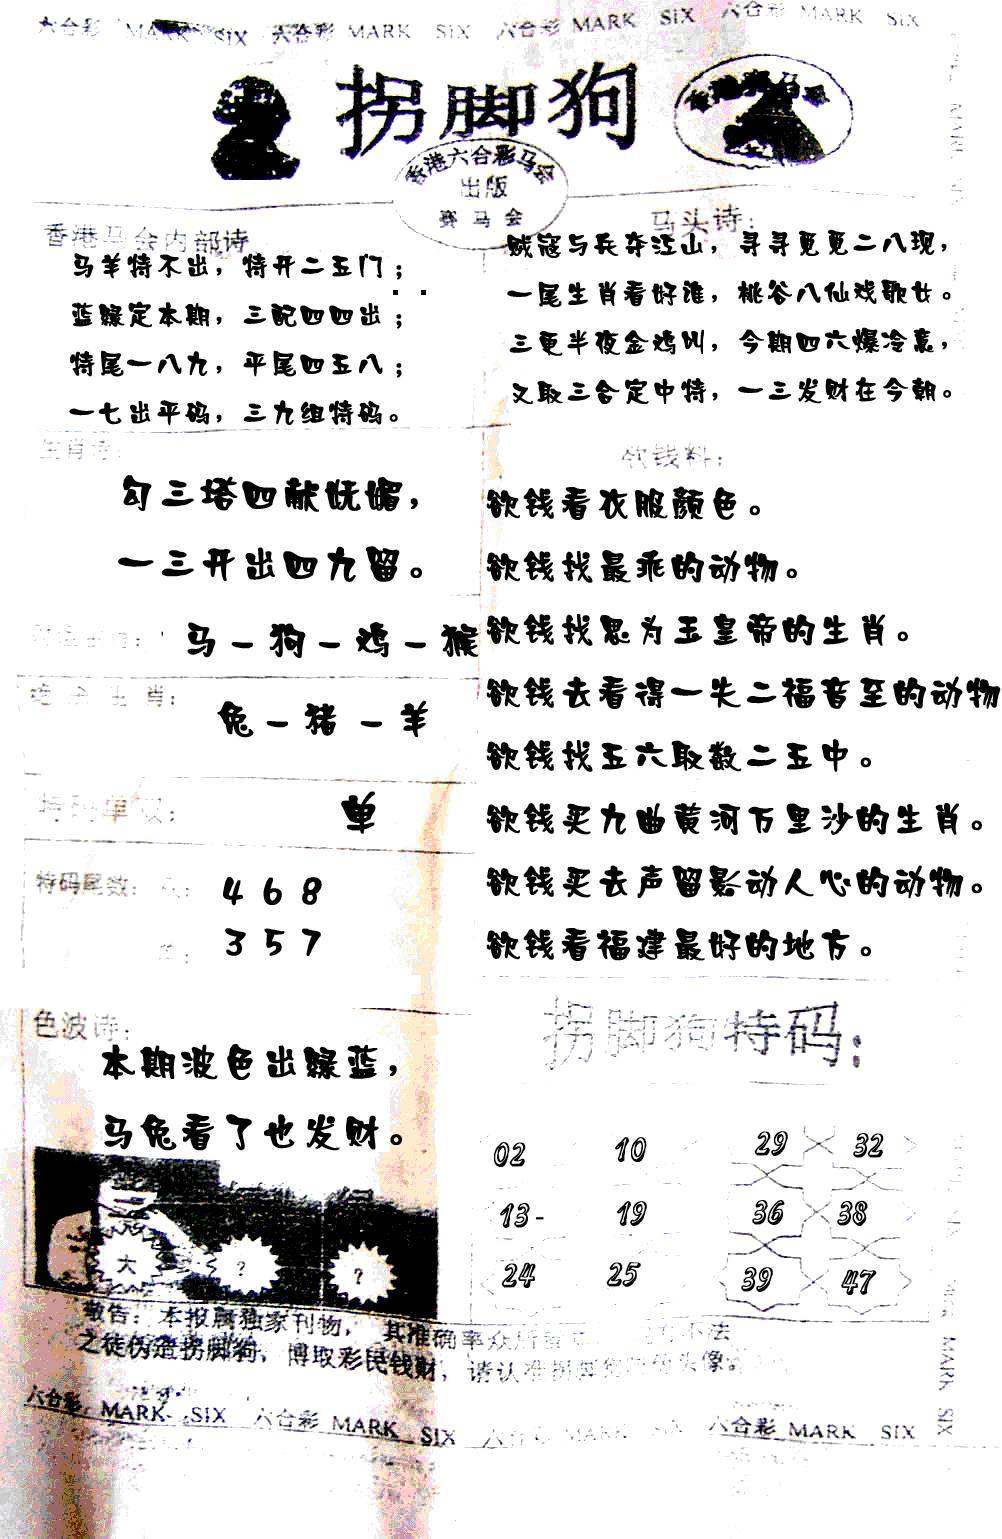 六合彩 MARK SIX 六合彩 MARK SIX 六合彩 MARK SIX 六合彩 MARK SIX
拐脚狗
香港六合彩马会
出版
赛马会
香港马会内部诗
马羊特不出，特开二五门；
蓝绿定本期，三配四四出；
特尾一八九，平尾四五八；
一七出平码，三九组特码。
马头诗：
贼寇与兵夺江山，寻寻觅觅二八现，
一尾生肖看好谁，桃谷八仙戏歌女。
三更半夜金鸡叫，今期四六爆冷意，
又取三合定中特，一三发财在今朝。
生肖诗：
勾三塔四献妩媚，
一三开出四九留。
马－狗－鸡－猴
绝杀生肖：
兔－猪－羊
特码单双：
单
特码尾数：
4 6 8
3 5 7
欲钱料：
欲钱看衣服颜色。
欲钱找最乖的动物。
欲钱找思为玉皇帝的生肖。
欲钱去看得一失二福音至的动物
欲钱找五六取数二五中。
欲钱买九曲黄河万里沙的生肖。
欲钱买去声留影动人心的动物。
欲钱看福建最好的地方。
色波诗：
本期波色出绿蓝，
马兔看了也发财。
大 ? ?
拐脚狗特码：
02 10 29 32
13- 19 36 38
24 25 39 47
敬告：本报属独家刊物，其准确率众所 不法
之徒伪造拐脚狗，博取彩民钱财，请认准拐脚 头像
六合彩 MARK SIX 六合彩 MARK SIX 六合彩 MARK SIX 六合彩 MARK SIX
MARK SIX